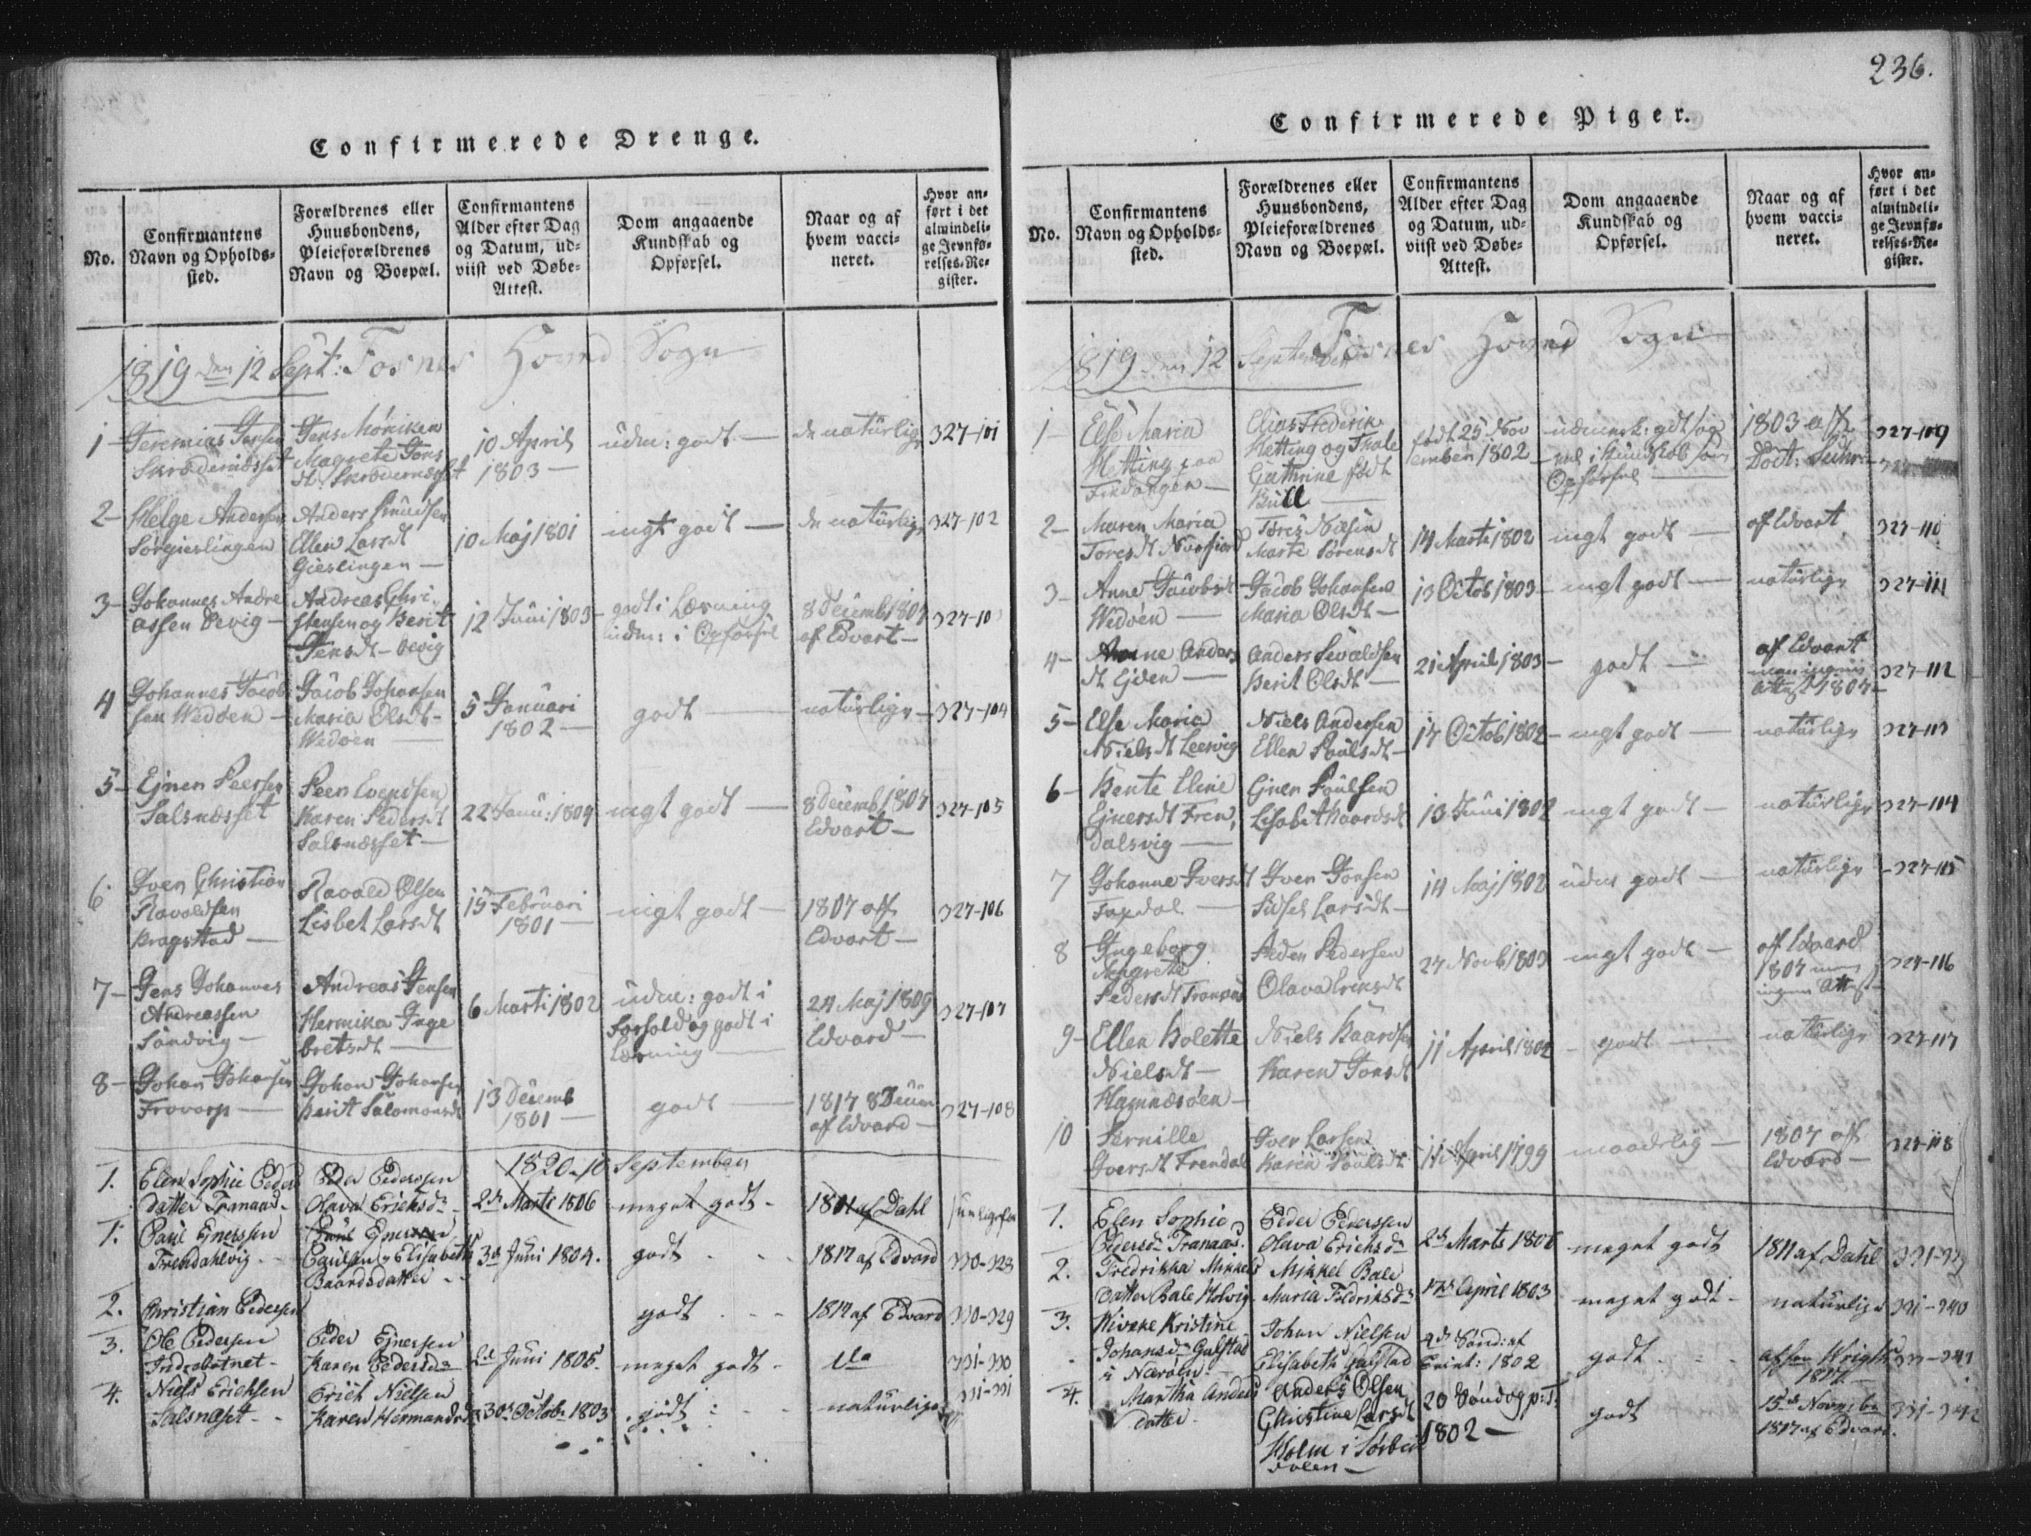 236.
Confirmerede Drenge.
No.
Confirmantens
Navn og Opholds-
sted.
Forældrenes eller
Huusbondens,
Pleieforældrenes
Navn og Boepæl.
Confirmantens
Alder efter Dag
og Datum, ud-
viist ved Døbe-
Attest.
Dom angaaende
Kundskab og
Opførsel.
Naar og af
hvem vacci-
neret.
Hvor an-
ført i det
almindeli-
ge Jevnfø-
relses-Re-
gister.
1819 den 12 Sept: Fosnes Hoved Sogn
1 Jeremias Jensen
Skrødernæsset
Jens Møniken
Magrete Jons
dt Skrødernæsset
10 April
1803
udm: godt
de naturlige
327-101
2 Helge Andersen
Sørgieslingen
Anders Knudsen
Ellen Larsdt
Gieslingen
10 Maj 1801
mgt godt
de naturlige
327-102
3 Johannes Andre
assen Devig
Andreas Chri-
stensen og Berit
Jensdt Devig
12 Juni 1803
godt i Læsning
udm: i Opførsel
8 Decemb 1807
af Edvart
327-103
4 Johannes Jacob
sen Wedøen
Jacob Johansen
Maria Olsdt
Wedøen
5 Januari
1802
godt
naturlige
327-104
5 Ejner Peersen
Salsnæsset
Peer Evensen
Karen Pedersdt
Salsnæsset
22 Janu: 1804
mgt godt
8 Decemb 1807
Edvart
327-105
6 Iver Christian
Ravoldsen
Kragstad
Ravald Olsen
Lisbet Larsdt
15 Februari
1801
mgt godt
1807 aff
Edvart
327-106
7 Jens Johannes
Andreassen
Sandvig
Andreas Jensen
Hermika Inge
bretsdt
6 Marti 1802
udm: godt i
Forhold og godt i
Læsning
24 Maj 1809
Edvard
327-107
8 Johan Johansen
Frovarp
Johan Johansen
Berit Salomonsdt
13 Decemb
1801
godt
1817 8 Decem
af Edvard
327-108
1820. 10 September
1. Elen Sophie Peders
datter Tranaas
Peder Pedersen
Olava Eriksdr
2de Marts 1806
meget godt
1801 af Dahl
1. Paul Ejnersen
Frendahlvig
Ejner
Paulsen og Elisabeth
Baardsdatter
3de Juni 1804.
godt
1817 af Edvard
330-328
2. Christian Pedersen
godt
1817 af Edvard
330-329
3. Ole Pedersen
Indrebotnet
Peder Ejnersen
Karen Pedersdr
2de Juni 1805.
meget godt
do
331-330
4. Niels Erichsen
Salsnæset
Erich Nielsen
Karen Hermansdr
30te Octobr 1803
godt
naturlige
331-331
Confirmerede Piger.
No.
Confirmantens
Navn og Opholds-
sted.
Forældrenes eller
Huusbondens,
Pleieforældrenes
Navn og Boepæl.
Confirmantens
Alder efter Dag
og Datum, ud-
viist ved Døbe-
Attest.
Dom angaaende
Kundskab og
Opførsel.
Naar og af
hvem vacci-
neret.
Hvor an-
ført i det
almindeli-
ge Jevnfø-
relses-Re-
gister.
1819 den 12 September Fosnes Hoved Sogn
1 Else Maria
Hetting paa
Findangen
Elias Frederik
Hetting og Thale
Cathrine født
Bull
født 25 Nov
ember 1802
udmerk: godt saa
vel i Kundskab som
Opførsel
1803 aff
Doct:
327-109
2 Maren Maria
Toresdt
Tores
Marte Sørensdt
14 Marti 1802
mgt godt
af Edvart
327-110
3 Anne Jacobsdt
Wedøen
Jacob Johansen
Maria Olsdt
13 Octob 1803
mgt godt
naturlige
327-111
4 Anne Anders
dt Ejden
Anders Sivaldsen
Berit Olsdt
21 April 1803
godt
af Edvart
men ingen
Attest 1807
327-112
5 Else Maria
Nielsdt Leervig
Niels Andersen
Ellen Paulsdt
17 Octob 1802
mgt godt
naturlige
327-113
6 Bente Eline
Ejnersdt Fren,
dalsvig
Ejner Poulsen
Lisabet Baardsdt
13 Juni 1802
mgt godt
naturlige
327-114
7 Johanne Iversdt
Faxdal
Iver Jonsen
Sidsel Larsdt
14 Maj 1802
udm godt
naturlige
327-115
8 Ingeborg
Magrete
Pedersdt Tranaas
Peder Pedersen
Olava Eriksdt
27 Novb 1803
mgt godt
aff Edvard
1807 men
ingen Attest
327-116
9 Ellen Bolette
Nielsdt
Hamnesøen
Niels Baardsen
Karen Jonsdt
11 April 1802
godt
naturlige
327-117
10 Pernille
Iversdt Frendal
Iver Larsen
Karen Poulsdt
11 April 1799
maadelig
1807 aff
Edvard
327-118
1. Elen Sophie
Pedersdr Tranaas.
Peder Pederssen
Olava Erichsdr
2de Marts 1806
meget godt
1811 af Dahl
331-339
2. Fredrikka Mikkels
datter Bale Holvig
Mikkel Bale
Maria Fredriksdr
17de April 1803
meget godt
naturlige
331-340
3. Wiveke Kristine
Johansdr Galstad
i Nærøen
Johan Nielsen
Elisabeth Galstad
4de Sönd: ef
Trinit: 1802
godt
331-341
4. Martha Anders
datter
Anders Olsen
Christine Larsdt
Holm i Sørbei
dalen
20 Söndag p: T:
1802
godt
15de Novembr
1817 af Edvard.
331-342